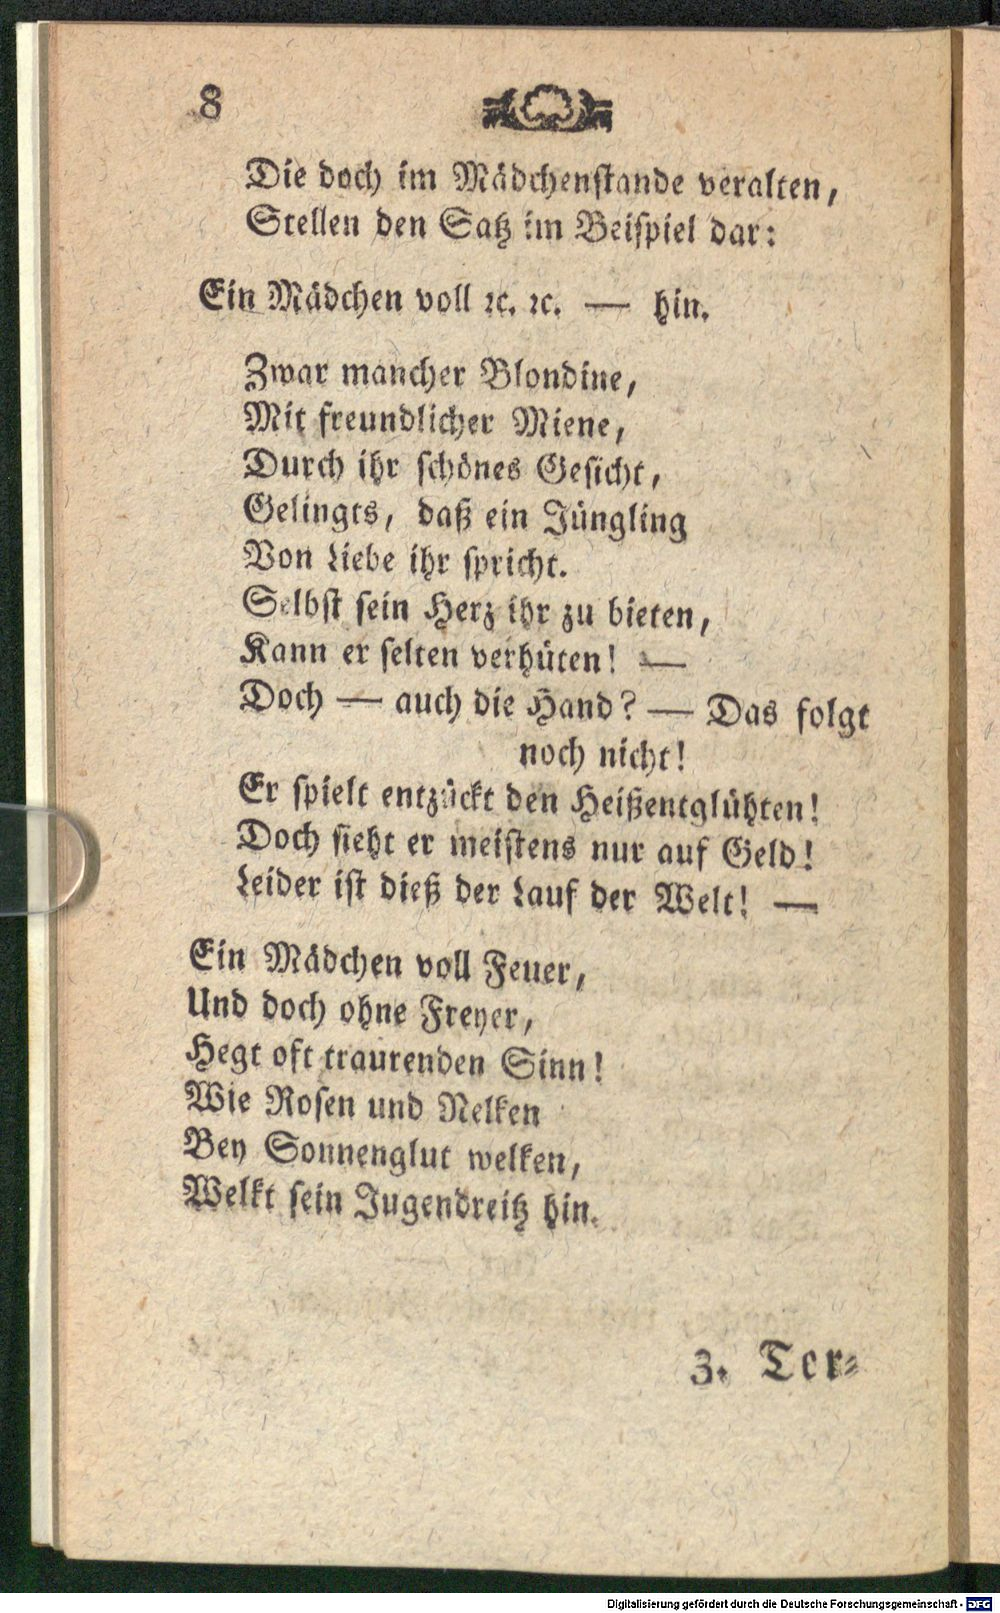 8
Die doch im Mädchenstande veralten,
Stellen den Satz im Beispiel dar:
Ein Mädchen voll ꝛc. ꝛc. — hin.
Zwar mancher Blondine,
Mit freundlicher Miene,
Durch ihr schönes Gesicht,
Gelingts, daß ein Jüngling
Von Liebe ihr spricht.
Selbst sein Herz ihr zu bieten,
Kann er selten verhüten! —
Doch — auch die Hand? — Das folgt
noch nicht!
Er spielt entzückt den Heißentglühten!
Doch sieht er meistens nur auf Geld!
Leider ist dieß der Lauf der Welt! —
Ein Mädchen voll Feuer,
Und doch ohne Freyer,
Hegt oft traurenden Sinn!
Wie Rosen und Nelken
Bey Sonnenglut welken,
Welkt sein Jugendreitz hin.
3. Ter-
Digitalisierung gefördert durch die Deutsche Forschungsgemeinschaft - DFG